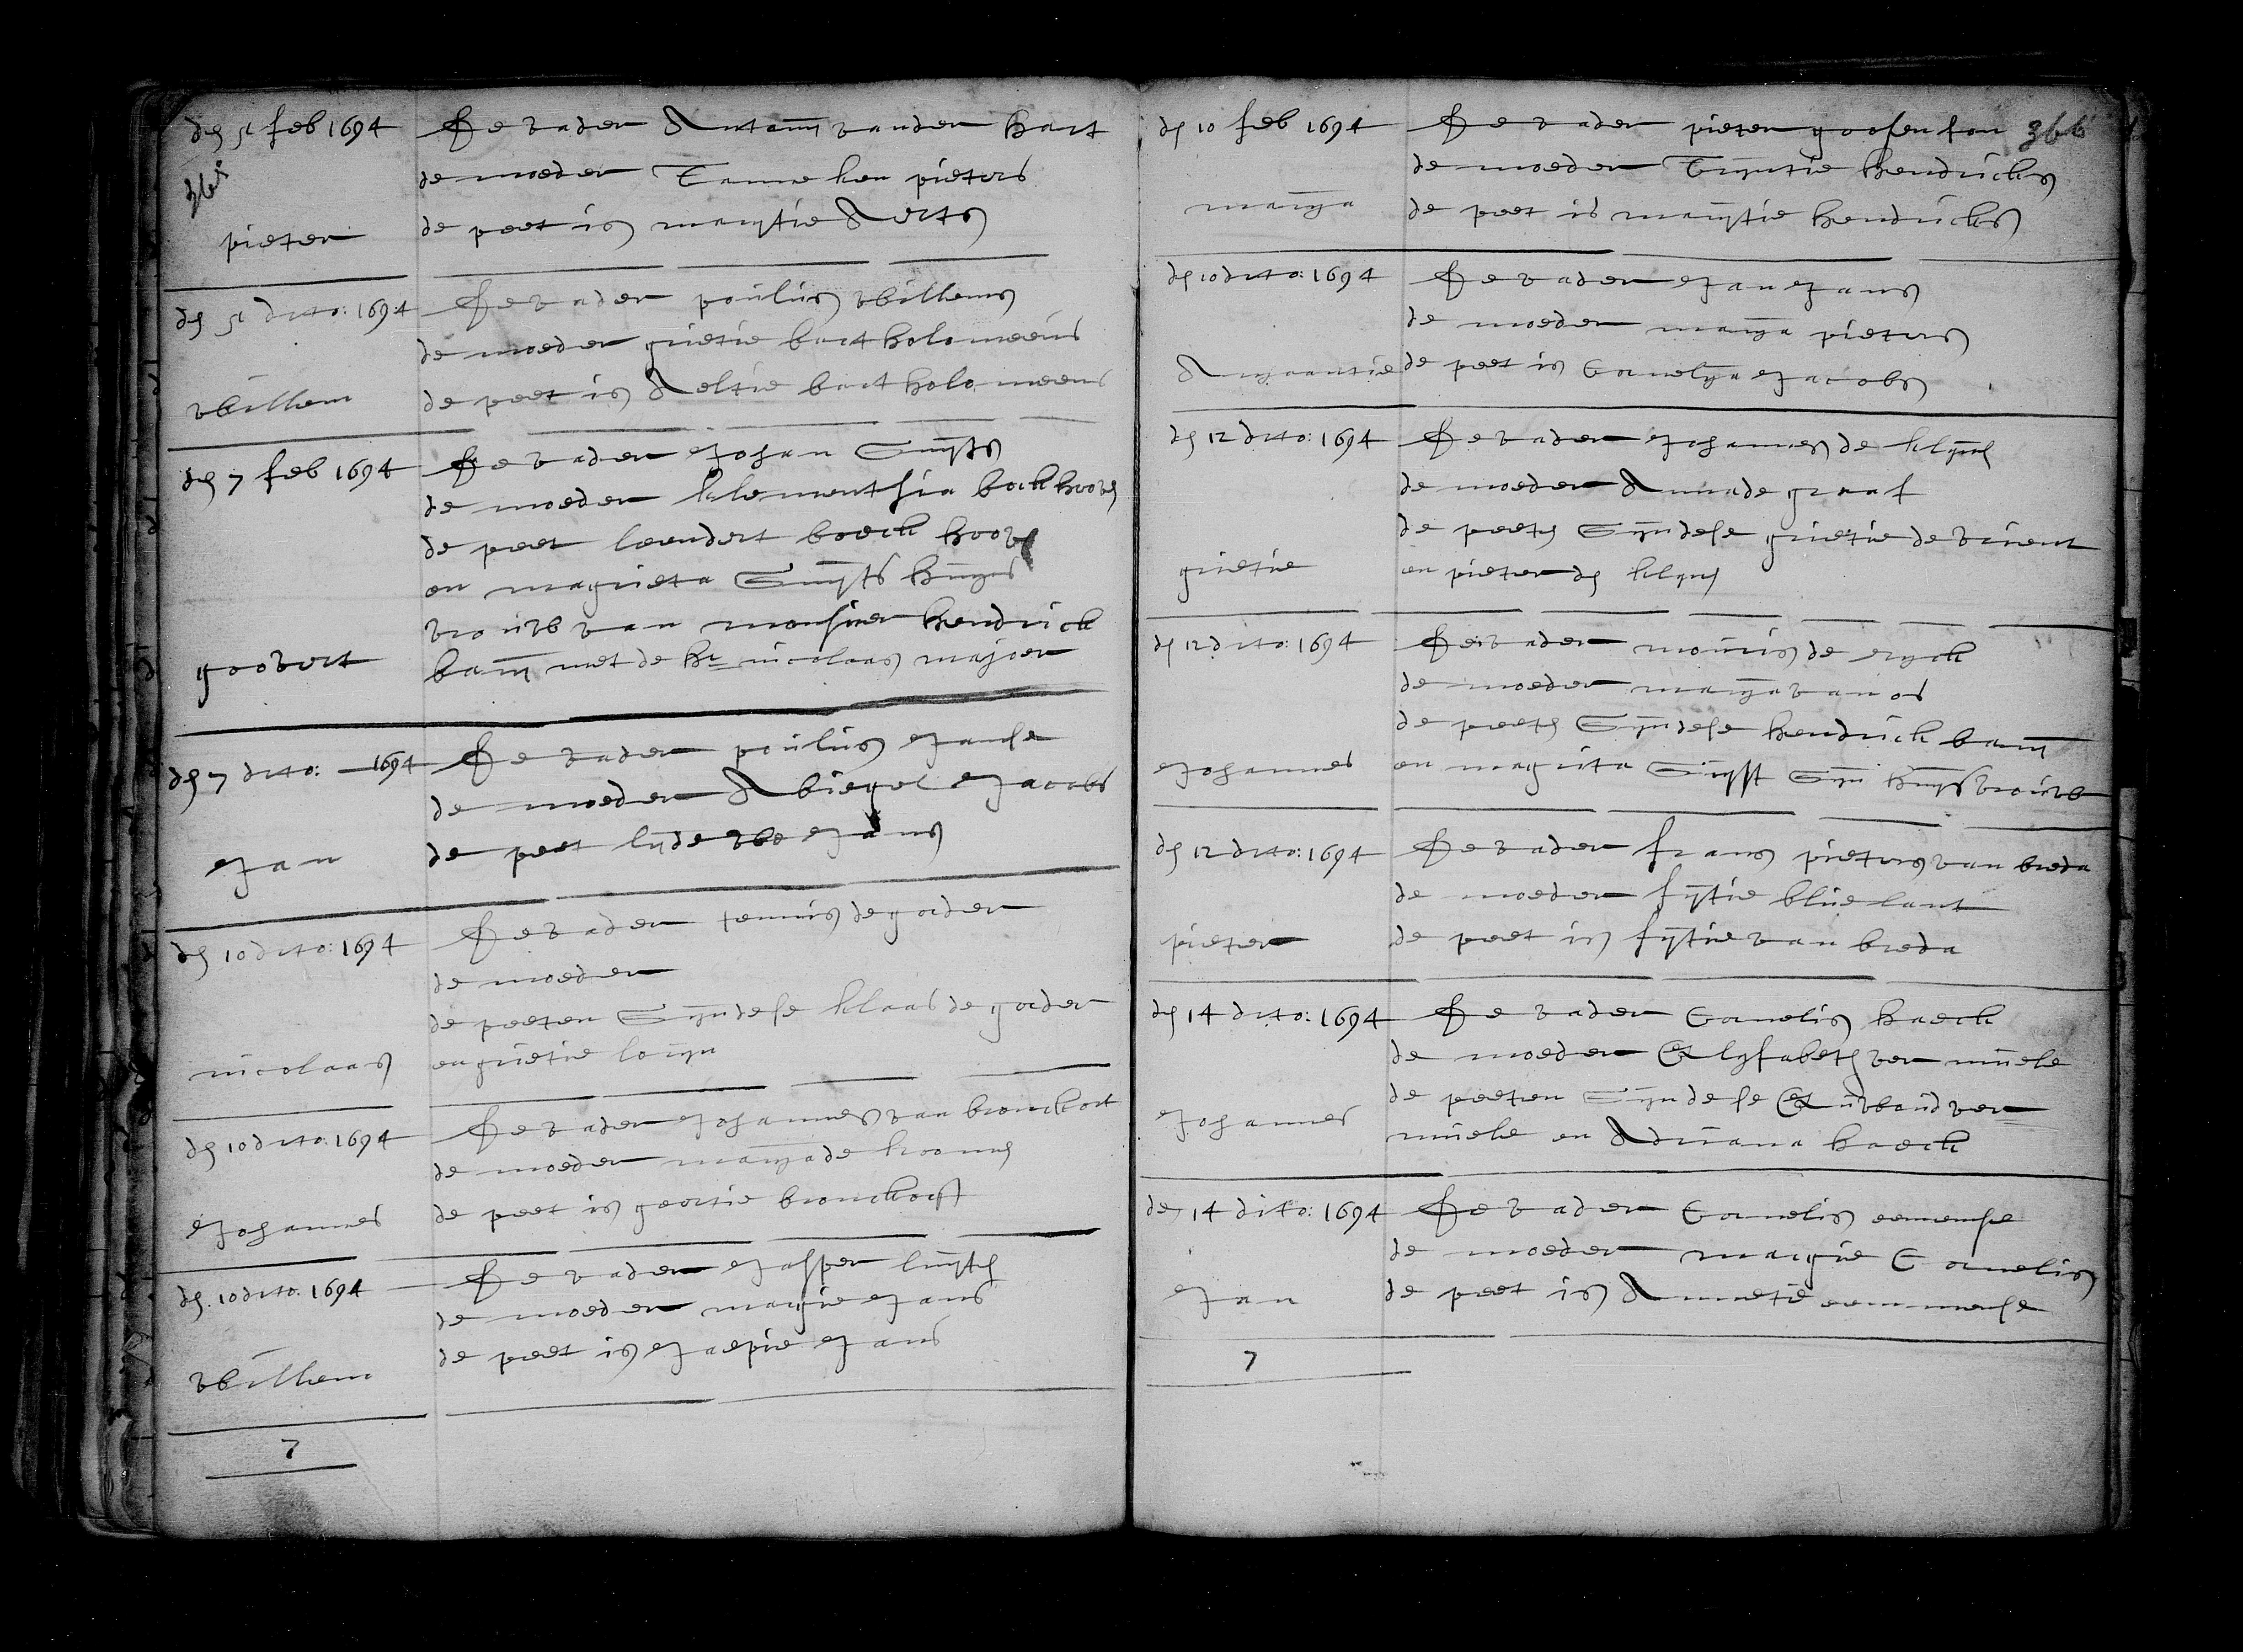 den 5 feb 1694 De vader Antonij vander hart
de moeder Tanneken pieters
365
pieter de peet is marijtie Aerts
den 5 ditto: 1694 De vader poulus willems
de moeder grietie bartholomeeus
willem de peet is Aeltie bartholomeeus
den 7 feb 1694 De vader Johan Suijts
de moeder klementsia bockhoove
de peet leendert boeckhoove
en magrieta Suijts huijs
vrouw van monsieur hendrick
goovert bam met de Hr nicolaas majoer
den 7 ditto: 1694 De vader poulus Janse
de moeder Abigel Jacobs
Jan de peet lijdewe Jans
den 10 ditto: 1694 De vader teunis de goeder
de moeder
de peeten Sijn dese klaas de goeder
nicolaas en grietie
den 10 ditto: 1694 De vader Johannes van bronckost
de moeder marija de
Johannes de peet is geertie bronckost
den 10 ditto. 1694 De vader Jasper luijten
de moeder margie Jans
willem de peet is Jaepie Jans
7
den 10 feb 1694 De vader pieter goosen son 366
de moeder Trijntie hendricks
marija de peet is marijtie hendricks
den 10 ditto: 1694 De vader Jan Jans
de moeder marija pieters
Arijaantie de peet is Cornelija Jacobs
den 12 ditto: 1694 De vader Johannes de klijn
de moeder Anna de graaf
de peeten Sijn dese grietie de vrient
grietie en pieter de klijn
den 12 ditto: 1694 De vader mouris de rijck
de moeder marija van os
de peeten Sijn dese hendrick bam
Johannes en magrita Suijst Sijn huijsvrouw
den 12 ditto: 1694 De vader frans pieters van breda
de moeder fijtie bluelant
pieter de peet is fijtie van breda
den 14 ditto: 1694 De vader Cornelis haeck
de moeder Elijsabeth ver muele
de peeten Sijn dese Euwoud ver
Johannes muele en Adriana haeck
den 14 dito: 1694 De vader Cornelis eemense
de moeder margie Cornelis
Jan de peet is Annetie eemmense
7